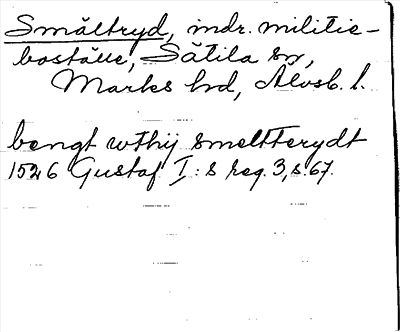 Smältryd, indr. militie-
boställe, Sätila sn,
Marks hd, Älvsb. l.
bengt wthij smeltterydt
1526 Gustaf I:s reg. 3, s. 67.